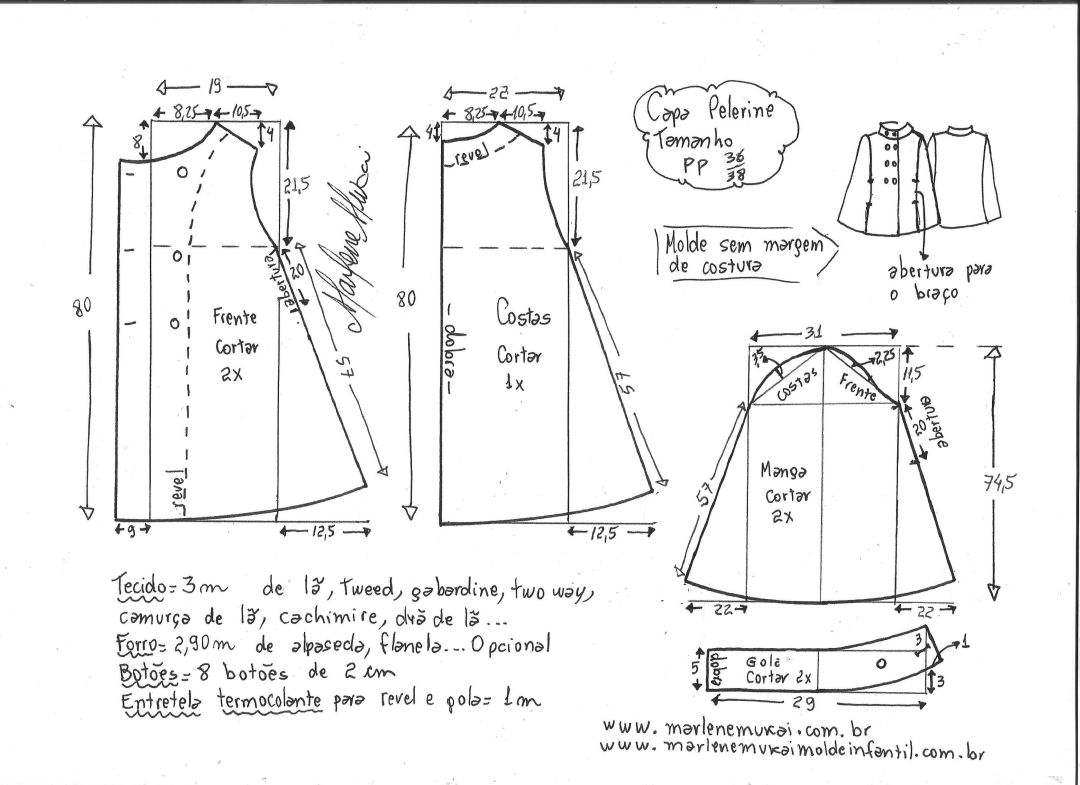 19
8,25 10,5
8
4
21,5
80
abertura
20
57
Frente
Cortar
2x
revel
9
12,5
Marlene Mukai
22
8,25 10,5
4
4
revel
21,5
80
dobra
Costas
Cortar
1x
57
12,5
Capa Pelerine
Tamanho
PP 36
38
Molde sem margem
de costura
abertura para
o braço
31
3,5
2,25
Costas
Frente
11,5
abertura
20
57
Manga
Cortar
2x
74,5
22
22
Tecido= 3m de lã, tweed, gabardine, two way,
camurça de lã, cachimire, drã de lã...
Forro= 2,90m de alpaseda, flanela... Opcional
Botões= 8 botões de 2 cm
Entretela termocolante para revel e gola= 1m
5
dobra
Gola
Cortar 2x
3
1
3
29
www.marlenemukai.com.br
www.marlenemukaimoldeinfantil.com.br